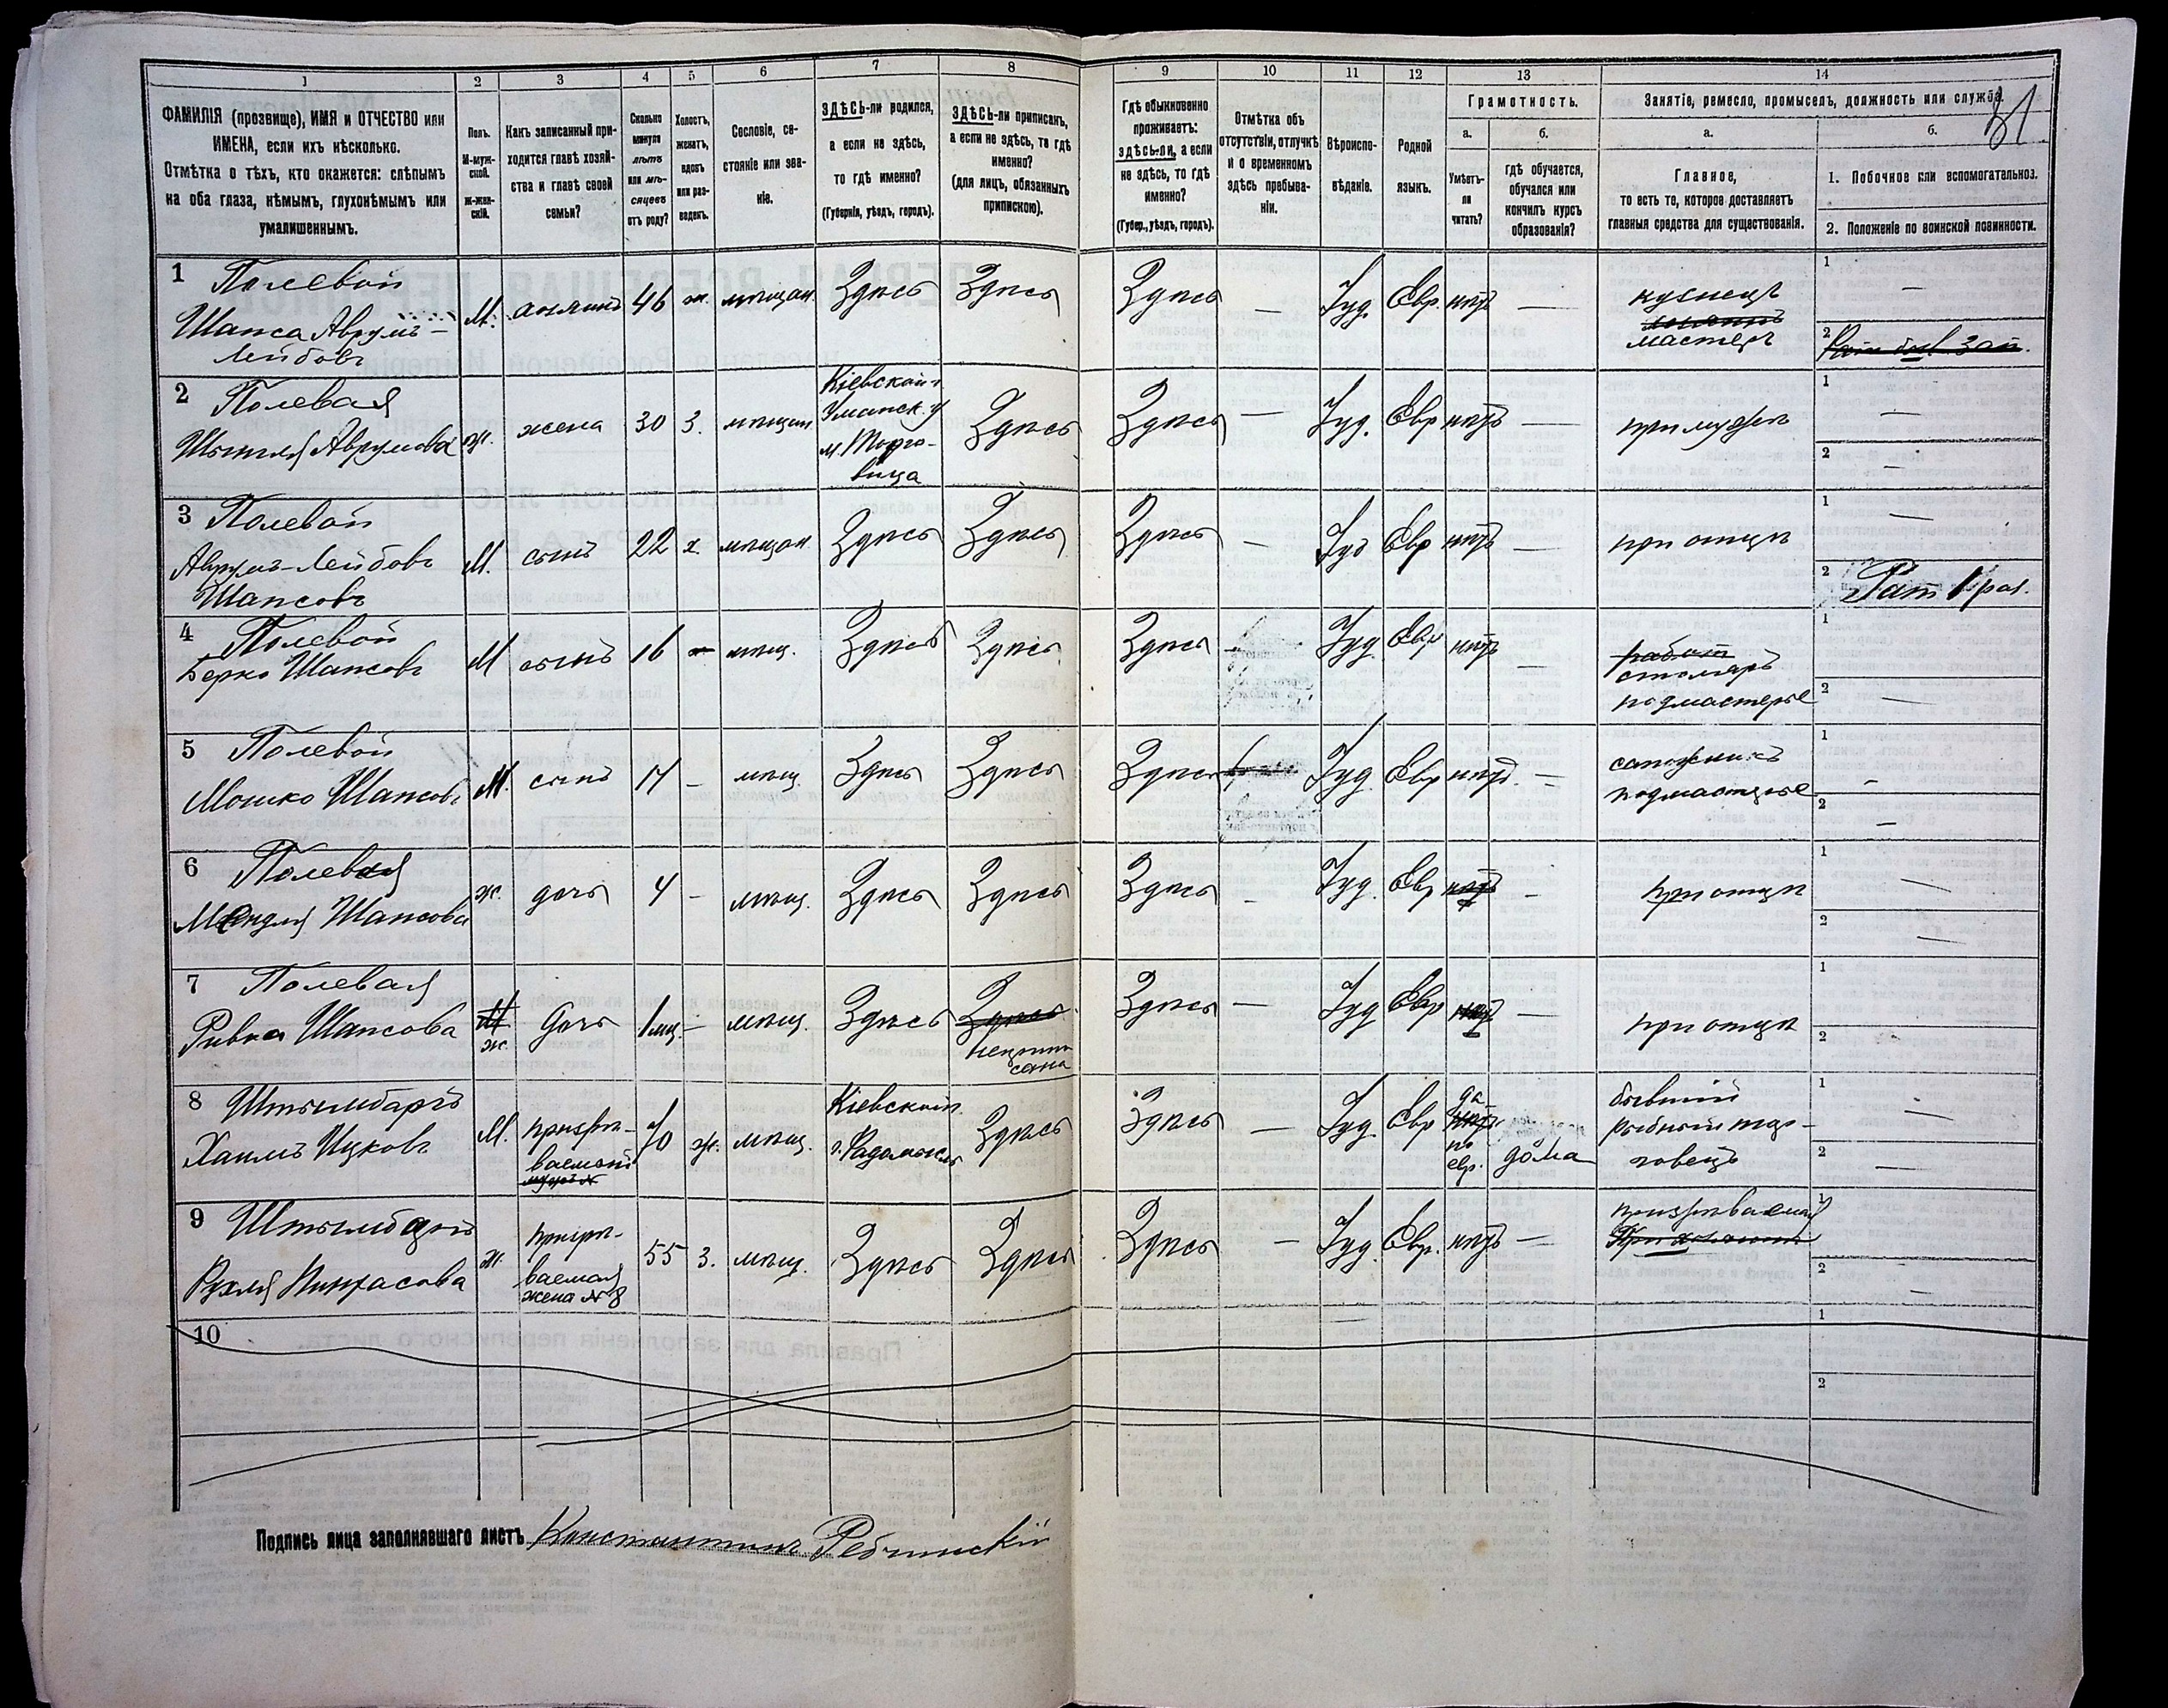 1 2 3 4 5 6 7 8 9 10 11 12 13 14
ФАМИЛІЯ (прозвище), ИМЯ и ОТЧЕСТВО или
ИМЕНА, если ихъ нѣсколько.
Отмѣтка о тѣхъ, кто окажется: слѣпымъ
на оба глаза, нѣмымъ, глухонѣмымъ или
умалишеннымъ.
Полъ.
М-муж-
ской.
Ж-жен-
скій.
Какъ записанный при-
ходится главѣ хозяй-
ства и главѣ своей
семьи?
Сколько
минуло
лѣтъ
или мѣ-
сяцевъ
отъ роду?
Холостъ,
женатъ,
вдовъ
или раз-
веденъ.
Сословіе, со-
стояніе или зва-
ніе.
ЗДѢСЬ-ли родился,
а если не здѣсь,
то гдѣ именно?
(Губернія, уѣздъ, городъ).
ЗДѢСЬ-ли приписанъ,
а если не здѣсь, то гдѣ
именно?
(для лицъ, обязанныхъ
припискою).
Гдѣ обыкновенно
проживаетъ:
здѣсь-ли, а если
не здѣсь, то гдѣ
именно?
(Губер., уѣздъ, городъ).
Отмѣтка объ
отсутствіи, отлучкѣ
и о временномъ
здѣсь пребыва-
ніи.
Вѣроиспо-
вѣданіе.
Родной
языкъ.
Грамотность.
а.
Умѣетъ-
ли
читать?
б.
гдѣ обучается,
обучался или
кончилъ курсъ
образованія?
Занятіе, ремесло, промыселъ, должность или служба.
а.
Главное,
то есть то, которое доставляетъ
главныя средства для существованія.
б.
1. Побочное или вспомогательное.
2. Положеніе по воинской повинности.
1 Полевой
Шапса Аврумъ-
Лейбовъ
М. 46 ж. мѣщан. Здѣсь Здѣсь Здѣсь — Іуд. Евр. нѣтъ —
кузнецъ
мастеръ
1 —
2
2 Полевая
Аврумова
ж. жена 30 З. мѣщан.
Кіевской г.
Уманск. у
м. Торго-
вица
Здѣсь Здѣсь — Іуд. Евр нѣтъ — при мужѣ
1 —
2 —
3 Полевой
Аврумъ-Лейбовъ
Шапсовъ
М. сынъ 22 х. мѣщан Здѣсь Здѣсь Здѣсь — Іуд Евр нѣтъ — при отцѣ
1 —
2 Рат 1 раз.
4 Полевой
Берко Шапсовъ
М сынъ 16 — мѣщ. Здѣсь Здѣсь Здѣсь Іуд Евр нѣтъ —
работ
столяръ
подмастерье
1
2 —
5 Полевой
Мошко Шапсовъ
М. сынъ — мѣщ. Здѣсь Здѣсь Здѣсь Іуд. Евр нѣтъ —
сапожникъ
подмастерье
1 —
2 —
6 Полевая
Шапсова
ж. дочь 4 — мѣщ. Здѣсь Здѣсь Здѣсь - Іуд. Евр нѣтъ — при отцѣ
1 —
2 —
7 Полевая
Ривка Шапсова
М
ж.
дочь 1 мц. — мѣщ. Здѣсь Здѣсь
неприпи
сана
Здѣсь — Іуд Евр нѣтъ — при отцѣ
1
2
8
Хаимъ Ицковъ
М.
призрѣ-
ваемый
70 ж. мѣщ.
Кіевской
г. Радомысль
Здѣсь Здѣсь — Іуд. Евр
да
нѣтъ
по
евр.
дома
бывшій
рыбный тор-
говецъ
1 —
2 —
9
Рухля Пинхасова
ж.
призрѣ-
ваемая
жена № 8
55 З. мѣщ. Здѣсь Здѣсь Здѣсь — Іуд. Евр. нѣтъ —
призрѣваемая
1
2 —
10
1
2
Подпись лица заполнявшаго листъ Константинъ